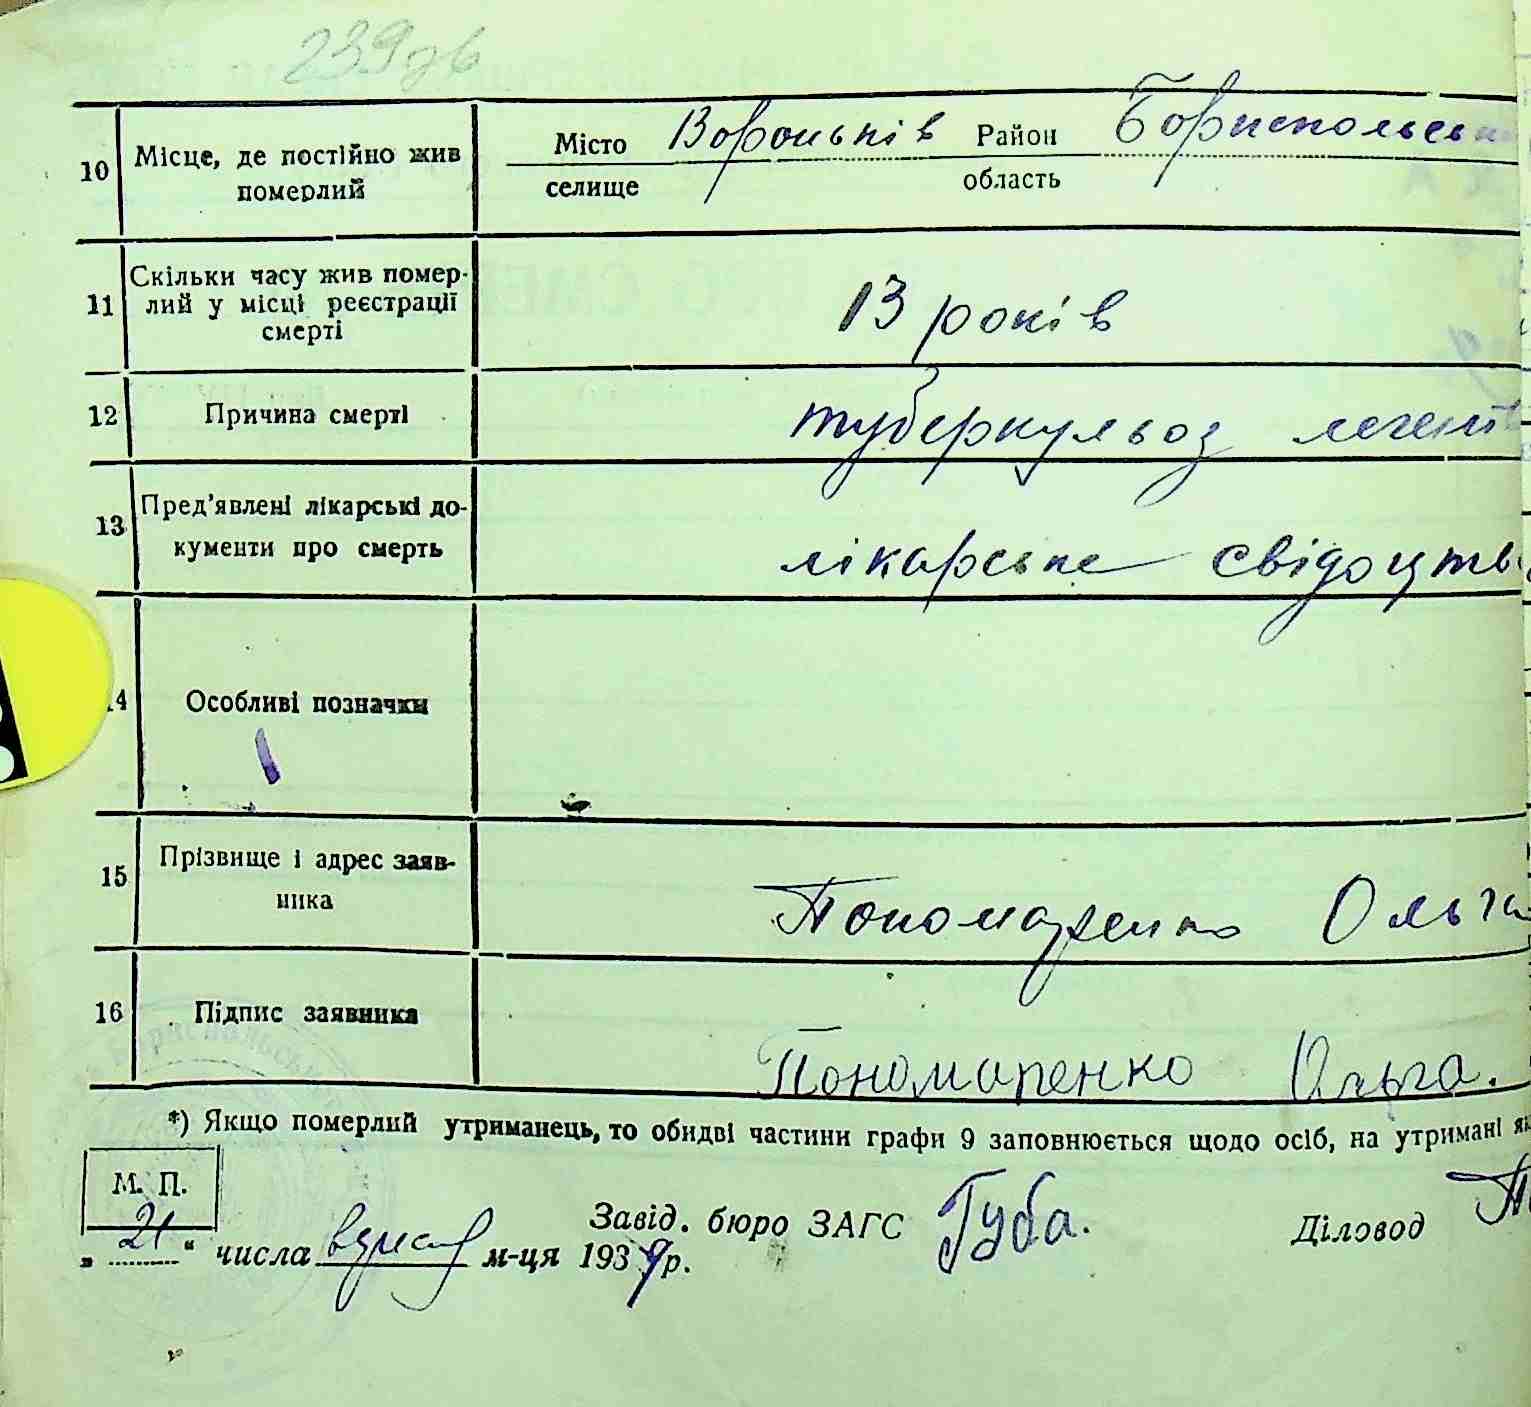 239зв
10 Місце, де постійно жив Місто Вороньків Район Бориспольськ
померлий селище область
11 Скільки часу жив помер-
лий у місці реєстрації 13 років
смерті
12 Причина смерті туберкульоз легенів
13 Пред’явлені лікарські до-
кументи про смерть лікарське свідоцтво
14 Особливі позначки
15 Прізвище і адрес заяв-
ника Пономаренко Ольга
16 Підпис заявника Пономаренко Ольга.
*) Якщо померлий утриманець, то обидві частини графи 9 заповнюється щодо осіб, на утримані як
М. П.
Завід. бюро ЗАГС Губа. Діловод
„ 21 “ числа м-ця 1939р.